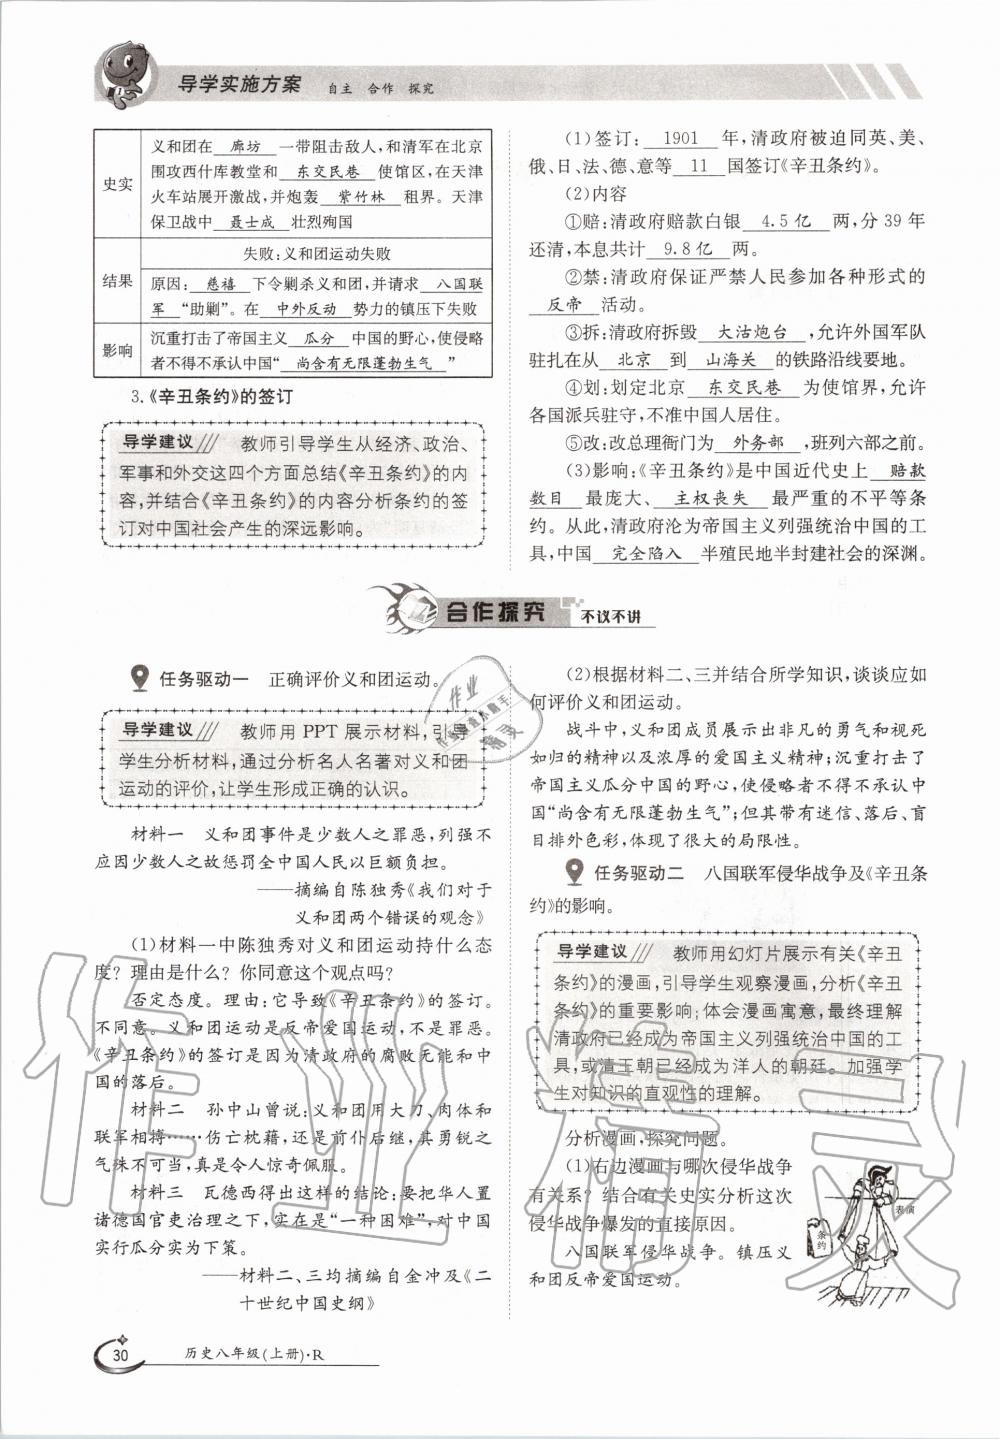 导学实施方案 自主 合作 探究
史实
义和团在 廊坊 一带阻击敌人,和清军在北京
围攻西什库教堂和 东交民巷 使馆区,在天津
火车站展开激战,并炮轰 紫竹林 租界。天津
保卫战中 聂士成 壮烈殉国
结果
失败:义和团运动失败
原因: 慈禧 下令剿杀义和团,并请求 八国联
军 “助剿”。在 中外反动 势力的镇压下失败
影响
沉重打击了帝国主义 瓜分 中国的野心,使侵略
者不得不承认中国“ 尚含有无限蓬勃生气 ”
3.《辛丑条约》的签订
导学建议 教师引导学生从经济、政治、
军事和外交这四个方面总结《辛丑条约》的内
容,并结合《辛丑条约》的内容分析条约的签
订对中国社会产生的深远影响。
(1)签订: 1901 年,清政府被迫同英、美、
俄、日、法、德、意等 11 国签订《辛丑条约》。
(2)内容
①赔:清政府赔款白银 4.5亿 两,分39年
还清,本息共计 9.8亿 两。
②禁:清政府保证严禁人民参加各种形式的
反帝 活动。
③拆:清政府拆毁 大沽炮台 ,允许外国军队
驻扎在从 北京 到 山海关 的铁路沿线要地。
④划:划定北京 东交民巷 为使馆界,允许
各国派兵驻守,不准中国人居住。
⑤改:改总理衙门为 外务部 ,班列六部之前。
(3)影响:《辛丑条约》是中国近代史上 赔款
数目 最庞大、 主权丧失 最严重的不平等条
约。从此,清政府沦为帝国主义列强统治中国的工
具,中国 完全陷入 半殖民地半封建社会的深渊。
合作探究 不议不讲
任务驱动一 正确评价义和团运动。
导学建议 教师用PPT展示材料,引导
学生分析材料,通过分析名人名著对义和团
运动的评价,让学生形成正确的认识。
材料一 义和团事件是少数人之罪恶,列强不
应因少数人之故惩罚全中国人民以巨额负担。
——摘编自陈独秀《我们对于
义和团两个错误的观念》
(1)材料一中陈独秀对义和团运动持什么态
度?理由是什么?你同意这个观点吗?
否定态度。理由:它导致《辛丑条约》的签订。
不同意。义和团运动是反帝爱国运动,不是罪恶。
《辛丑条约》的签订是因为清政府的腐败无能和中
国的落后。
材料二 孙中山曾说:义和团用大刀、肉体和
联军相搏……伤亡枕藉,还是前仆后继,其勇锐之
气殊不可当,真是令人惊奇佩服。
材料三 瓦德西得出这样的结论:要把华人置
诸德国官吏治理之下,实在是“一种困难”,对中国
实行瓜分实为下策。
——材料二、三均摘编自金冲及《二
十世纪中国史纲》
(2)根据材料二、三并结合所学知识,谈谈应如
何评价义和团运动。
战斗中,义和团成员展示出非凡的勇气和视死
如归的精神以及浓厚的爱国主义精神;沉重打击了
帝国主义瓜分中国的野心,使侵略者不得不承认中
国“尚含有无限蓬勃生气”;但其带有迷信、落后、盲
目排外色彩,体现了很大的局限性。
任务驱动二 八国联军侵华战争及《辛丑条
约》的影响。
导学建议 教师用幻灯片展示有关《辛丑
条约》的漫画,引导学生观察漫画,分析《辛丑
条约》的重要影响;体会漫画寓意,最终理解
清政府已经成为帝国主义列强统治中国的工
具,或清王朝已经成为洋人的朝廷。加强学
生对知识的直观性的理解。
分析漫画,探究问题。
(1)右边漫画与哪次侵华战争
有关系?结合有关史实分析这次
侵华战争爆发的直接原因。
八国联军侵华战争。镇压义
和团反帝爱国运动。
表演
条约
30 历史八年级(上册)·R
作业精灵